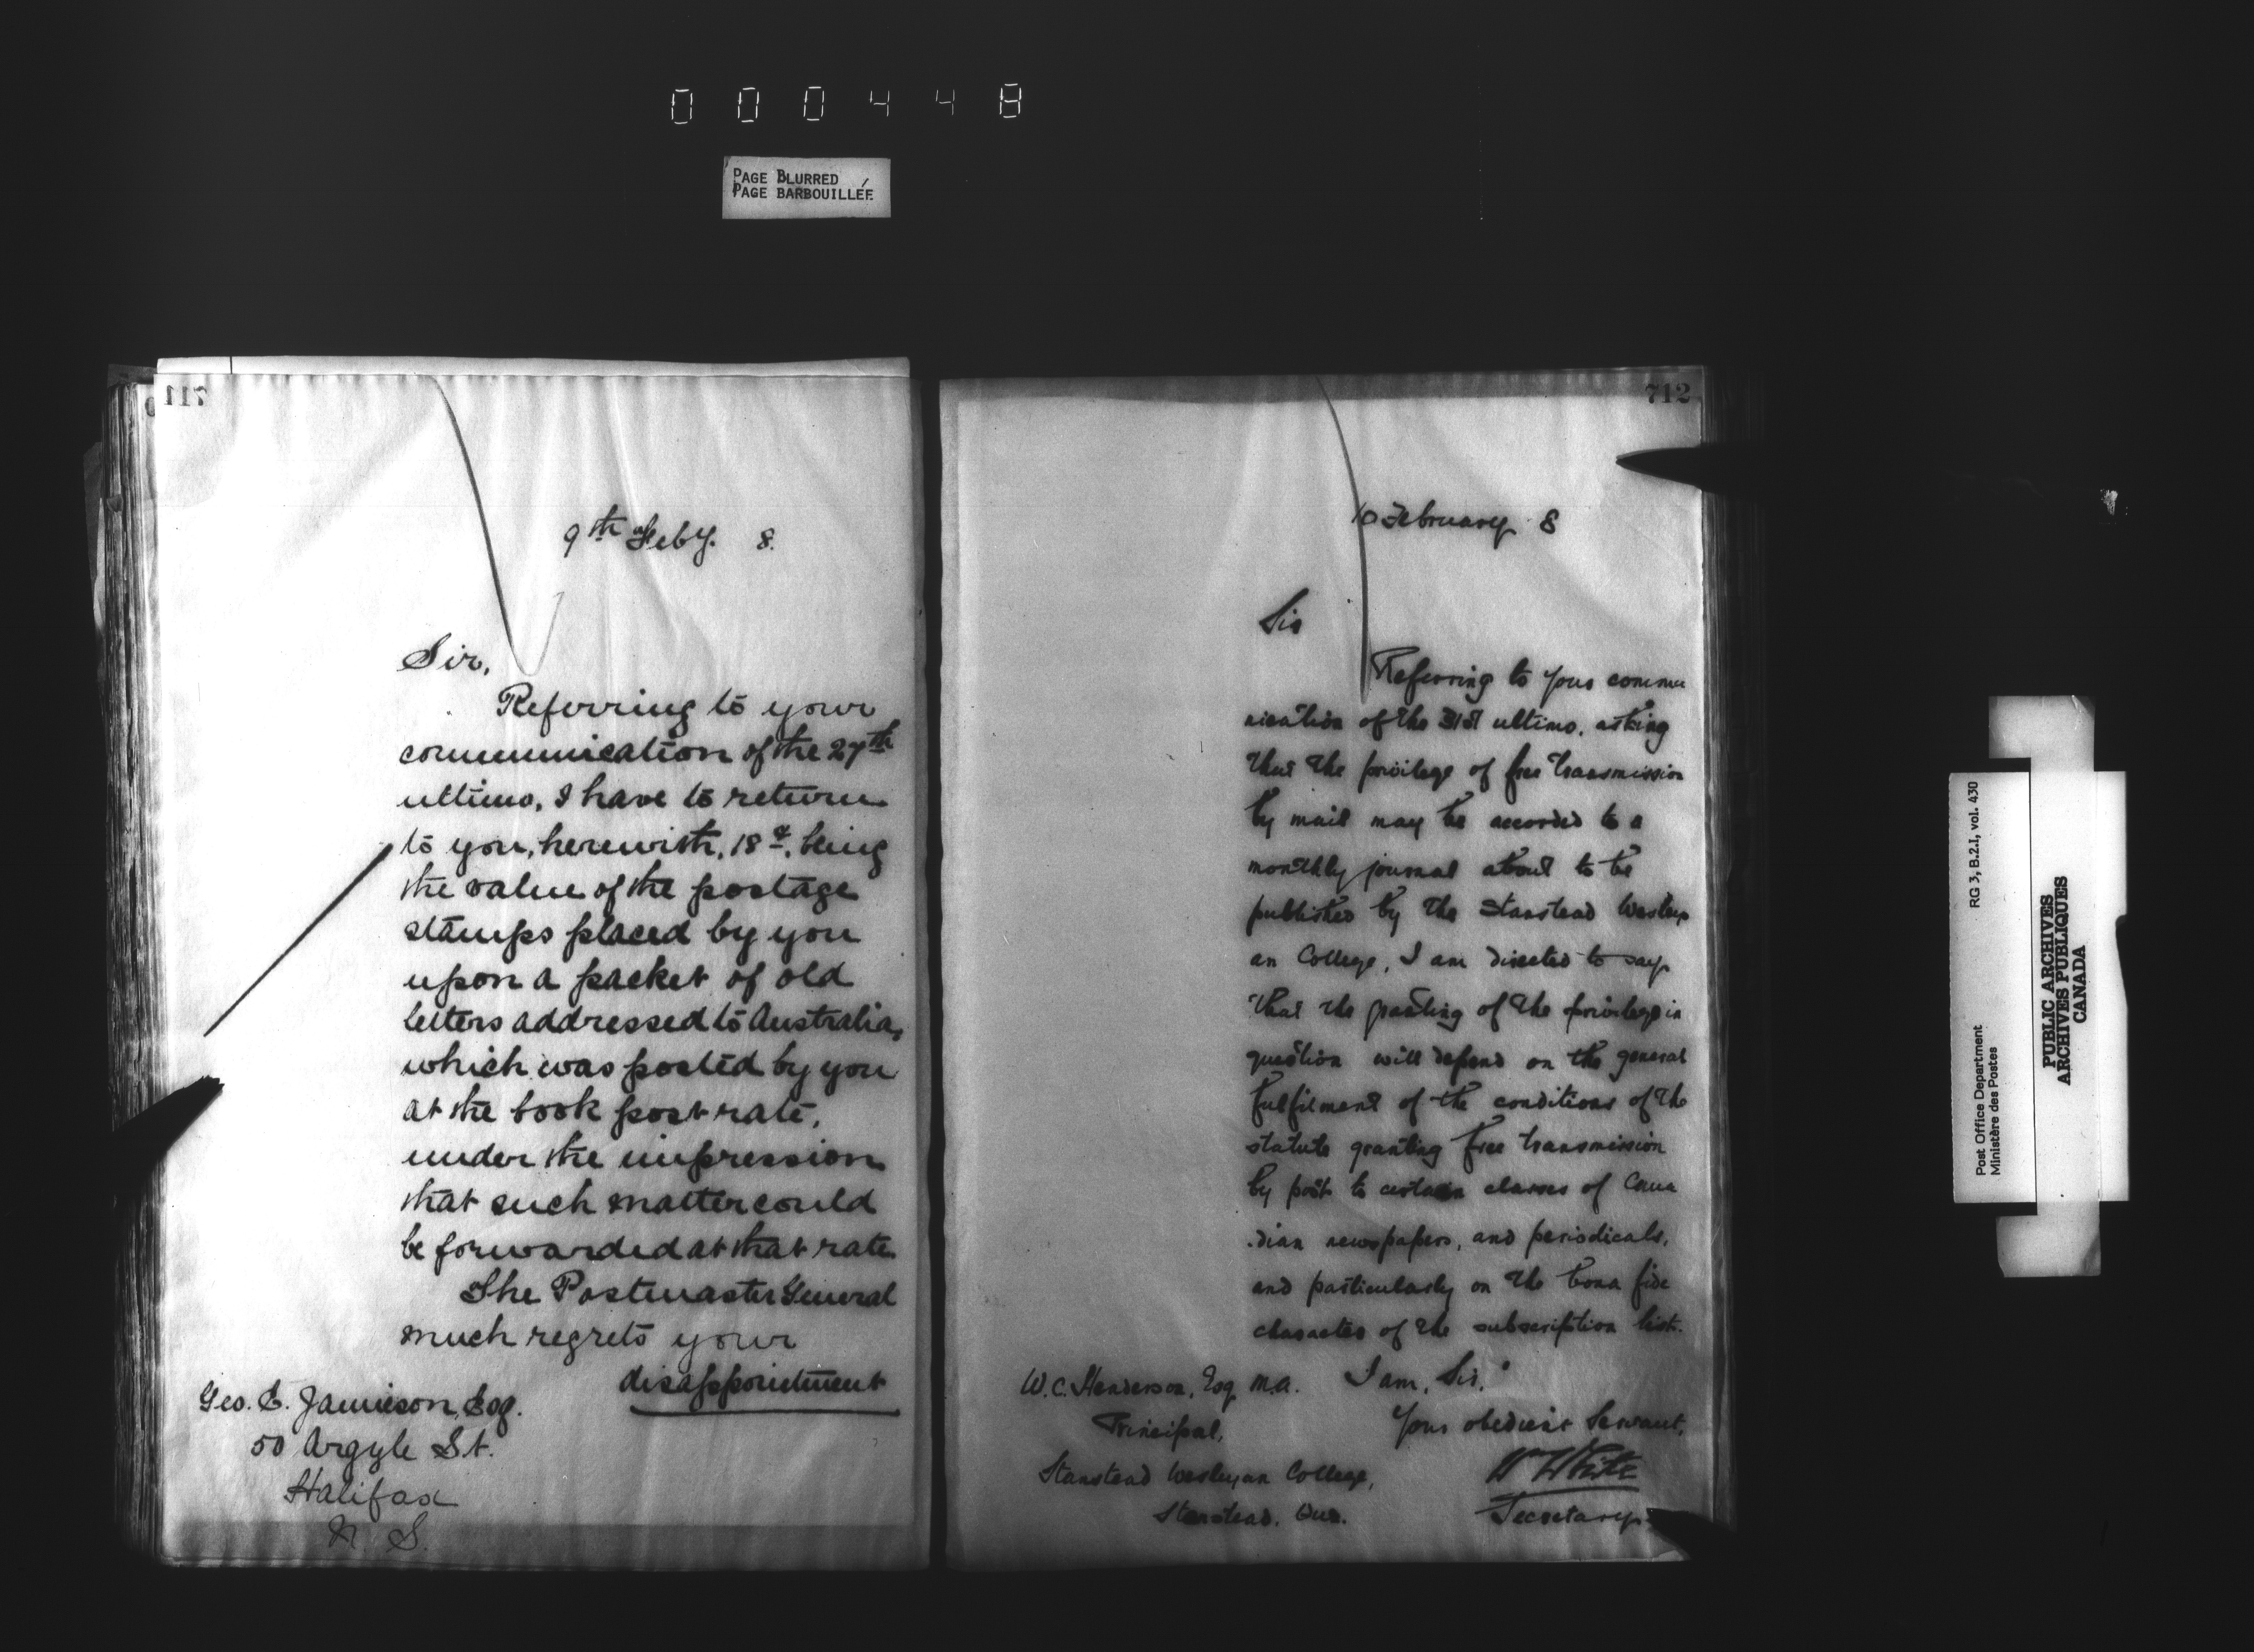 000448
PAGE BLURRED
PAGE BARBOUILLÉE
711
9th Feby. 8.
Sir,
Referring to your
communication of the 27th
ultimo, I have to return
to you, herewith, 18¢, being
the value of the postage
stamps placed by you
upon a packet of old
letters addressed to Australia,
which was posted by you
at the book post rate,
under the impression
that such matter could
be forwarded at that rate.
The Postmaster General
much regrets your
disappointment
Geo. E. Jamieson, Esq.
50 Argyle St.
Halifax
N. S.
712
10 February 8
Sir
Referring to your commu
nication of the 31st ultimo, asking
that the privilege of free transmission
by mail may be accorded to a
monthly journal about to be
published by the Stanstead Wesley
an College, I am directed to say
that the granting of the privilege in
question will depend on the general
fulfilment of the conditions of the
statute granting free transmission
by post to certain classes of Cana
dian newspapers, and periodicals,
and particularly on the bona fide
character of the subscription list.
I am, Sir,
Your obedient Servant,
W White
Secretary
W.C. Henderson, Esq M.A.
Principal,
Stanstead Wesleyan College,
Stanstead, Que.
Post Office Department
Ministère des Postes
RG 3, B.2.I, vol. 430
PUBLIC ARCHIVES
ARCHIVES PUBLIQUES
CANADA